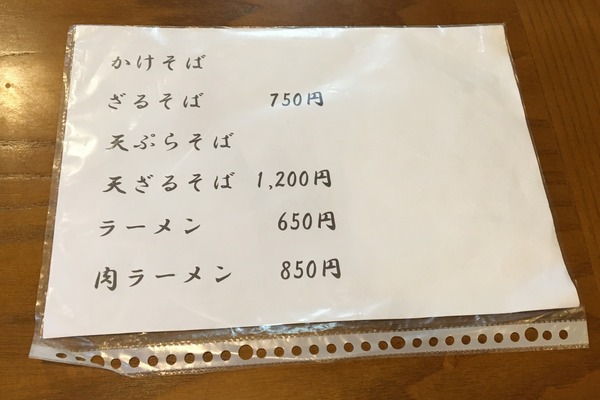 かけそば
ざるそば 750円
天ぷらそば
天ざるそば 1,200円
ラーメン 650円
肉ラーメン 850円